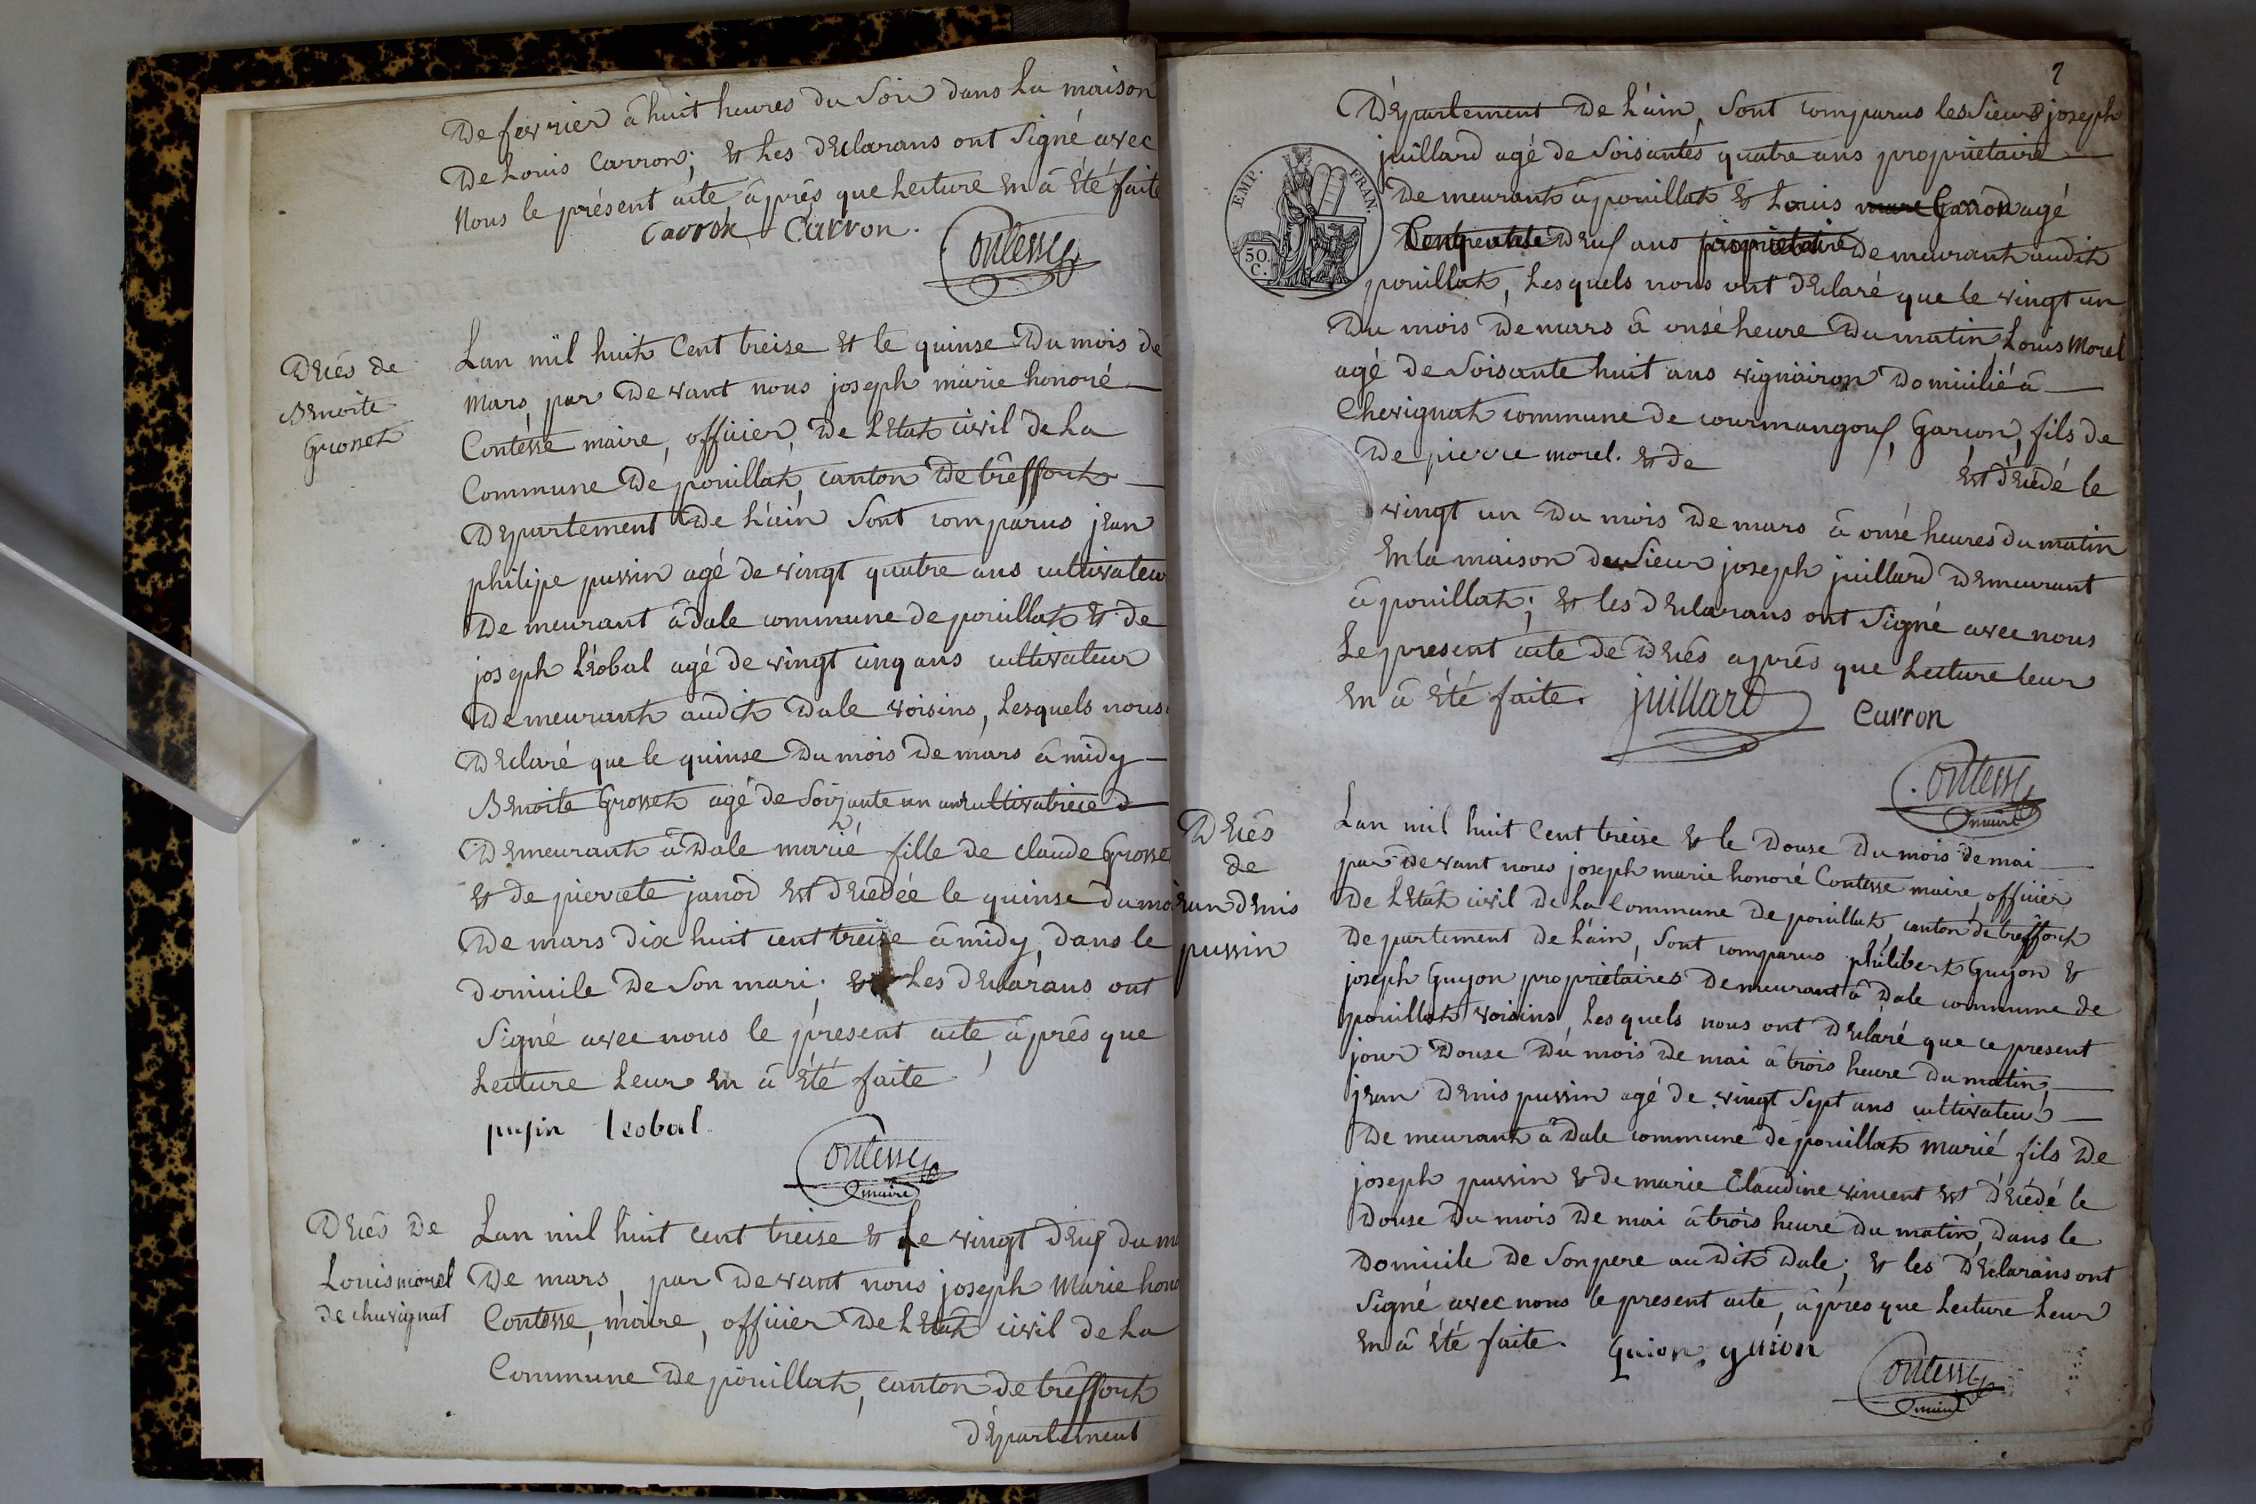 De fevrier â huit heures du Soir dans La maison
De Louis Carron; et Les déclarans ont Signé avec
Nous le présent acte âprés que Lecture En â Eté faite
Carron Carron.
Contesse
Décés de
Benoite
Grosset
Lan mil huit Cent treise et le quinse Du mois de
Mars, par De vant nous joseph marie honoré
Contésse maire, officier, De L'Etat civil De La
Commune De pouillat, canton De trêffort
Département De L'ain Sont comparus jean
philipe pussin agé de vingt quatre ans cultivateur
De meurant â dale commune de pouillat et de
joseph Léobal agé de vingt cinq ans cultivateur
De meurant audit Dale voisins, Lesquels nous
Déclaré que le quinse Du mois De mars â midy
Benoite Grosset agé de Soizante un ans cultivatrice
Demeurant â Dale marié fille de claude Grosse
et de pierrete janod Est décédée le quinse du moi
De mars dix huit cent treise â midy, dans le
domicile De Son mari; et Les déclarans ont
Signé avec nous le présent acte, âprés que
Lecture Leur En â Eté faite
pusin leobal
Contesse
maire
Décés De
Louis morel
de chevignat
Lan mil huit cent treise et Le vingt deux du m
De mars, par De vant nous joseph Marie hono
Contesse, maire, officier De L'Etat civil de La
Commune De pouillat, canton de trêffort
département
7
Département De L'ain, Sont comparus les Sieurs joseph
juillard agé de Soisantes quatre ans propriétaire
De meurant â pouillat et Louis Carron agé
deux ans propriétaire De meurant audit
pouillat, Lesquels nous ont déclaré que le vingt un
Du mois De mars â onsé heure Du matin Louis Morel
agé De Soisante huit ans vignairon Domicilié â
Chevignat commune de courmangoux, Garcon, fils de
De pierre morel. et de
Est décédé le
vingt un Du mois De mars â onsé heures du matin
En la maison du Sieur joseph juillard Demeurant
â pouillat; et les déclarans ont Signé avec nous
Le present acte de Décés aprés que Lecture leur
En â Eté faite. juillard Carron
Contesse
maire
EMP. FRAN.
50
C.
Décés
de
jean denis
pussin
Lan mil huit Cent treise et le Douse Du mois de mai
par De vant nous joseph marie honoré Contesse maire, officier
De L'Etat civil De La Commune De pouillat, canton de trêffort
De partement De L'ain, Sont comparus philibert Guyon et
joseph Guyon propriétaires Demeurant â Dale commune de
pouillat voisins, Lesquels nous ont déclaré que ce present
jour Douse Du mois de mai â trois heure du matin,
jean Denis pussin agé de vingt Sept ans cultivateur
De meurant â Dale commune dé pouillat marié fils De
joseph pussin et de marie Claudine vincent Est décédé le
Douse Du mois De mai â trois heure du matin, Dans le
Domicile De Son pere au Dit Dale; et les Déclarans ont
Signé avec nous le present acte, âpres que Lecture Leur
En â Eté faite. Guion, guion
Contesse
maire